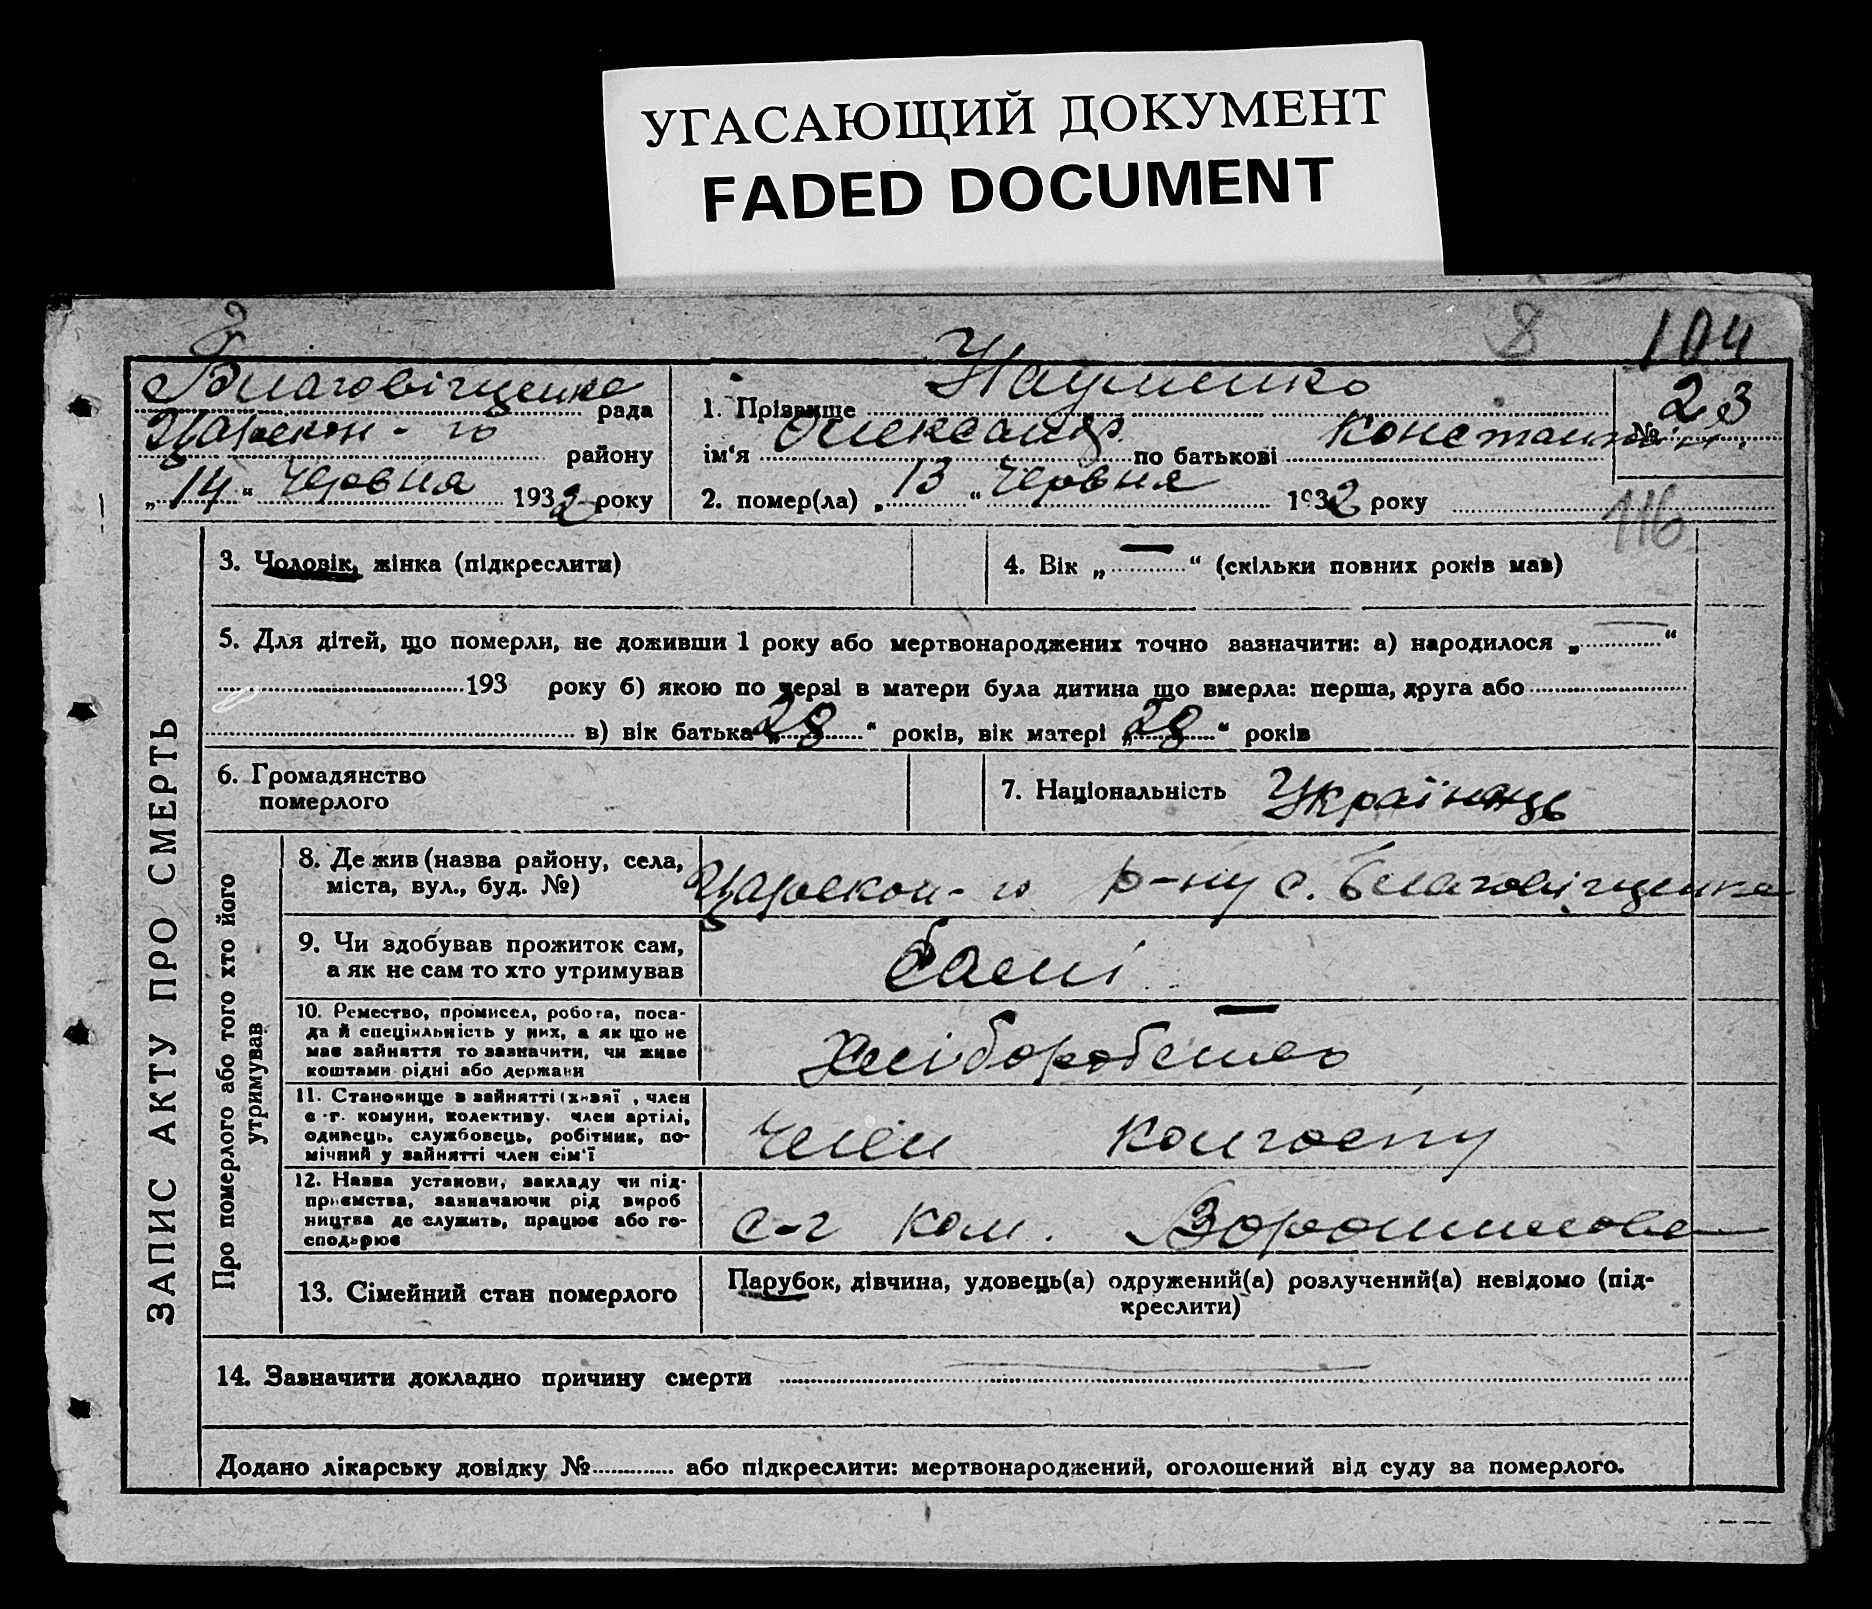 УГАСАЮЩИЙ ДОКУМЕНТ
FADED DOCUMENT
8 104
Благовіщенка рада
Царекон-го району
„14“ Червня 1932 року
1. Прізвище Науменко
ім‘я Олександр по батькові Констант. № 23
2. помер(ла) „13“ Червня 1932 року
116
ЗАПИС АКТУ ПРО СМЕРТЬ
3. Чоловік, жінка (підкреслити)
4. Вік „—“ (скільки повних років мав)
5. Для дітей, що померли, не доживши 1 року або мертвонароджених точно зазначити: а) народилося „—“
193 року б) якою по черзі в матери була дитина що вмерла: перша, друга або
в) вік батька „28“ років, вік матері „28“ років
6. Громадянство
померлого
7. Національність Українець
Про померлого або того хто його
утримував
8. Де жив (назва району, села,
міста, вул., буд. №)
Царекон-го р-ну с. Благовіщенка
9. Чи здобував прожиток сам,
а як не сам то хто утримував
10. Ремество, промисел, робота, поса-
да й спеціяльність у них, а як що не
має зайняття то зазначити, чи живе
коштами рідні або держави
Хліборобство
11. Становище в зайнятті (хазяї, член
с.-г. комуни, колективу, член артілі,
одинець, службовець, робітник, по-
мічний у зайнятті член сім‘ї
Член колгоспу
12. Назва установи, закладу чи під-
приємства, зазначаючи рід вироб
ництва де служить, працює або го-
сподарює
с-г ком. Ворошилова
13. Сімейний стан померлого
Парубок, дівчина, удовець(а) одружений(а) розлучений(а) невідомо (під-
креслити)
14. Зазначити докладно причину смерти —
Додано лікарську довідку № або підкреслити: мертвонароджений, оголошений від суду за померлого.